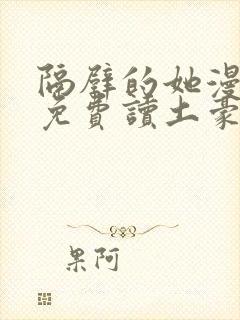 隔壁的她漫
免費讀土豪
果阿